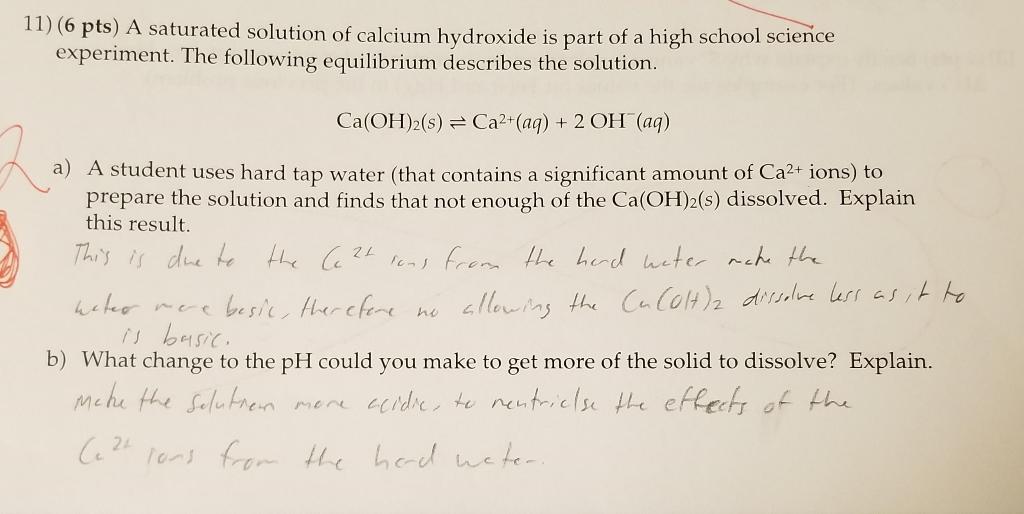 11) (6 pts) A saturated solution of calcium hydroxide is part of a high school science
experiment. The following equilibrium describes the solution.
Ca(OH)₂(s) ⇌ Ca²⁺(aq) + 2 OH⁻(aq)
a) A student uses hard tap water (that contains a significant amount of Ca²⁺ ions) to
prepare the solution and finds that not enough of the Ca(OH)₂(s) dissolved. Explain
this result.
This is due to the Ca²⁺ ions from the hard water make the
water more basic, therefore no allowing the Ca(OH)₂ dissolve less as it to
is basic.
b) What change to the pH could you make to get more of the solid to dissolve? Explain.
Make the Solution more acidic, to neutrielse the effects of the
Ca²⁺ ions from the hard water.